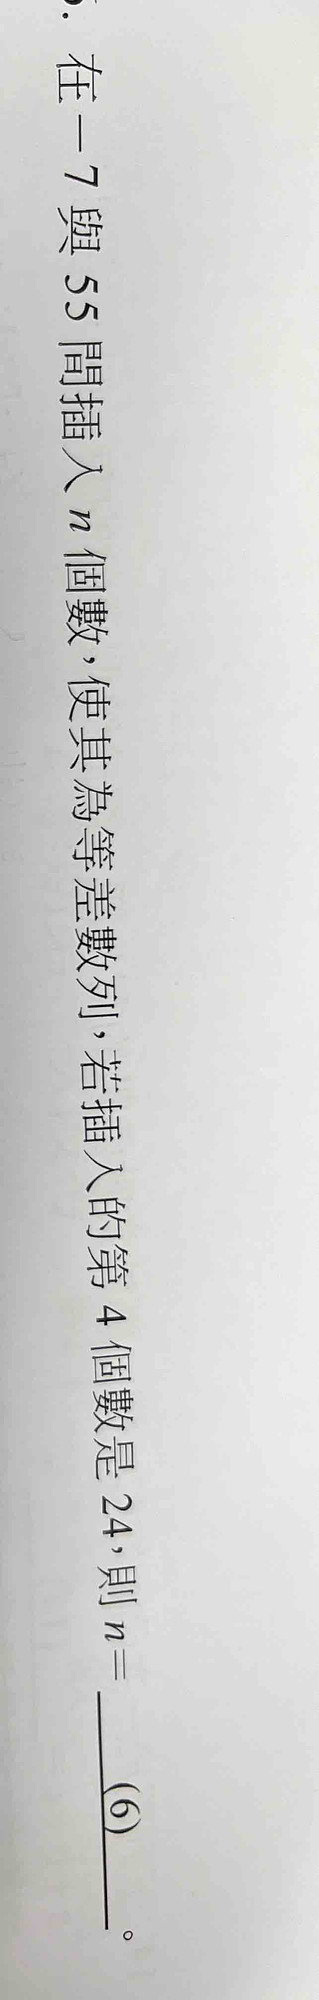 . 在－7 與 55 間插入 n 個數，使其為等差數列，若插入的第 4 個數是 24，則 n＝ (6) 。